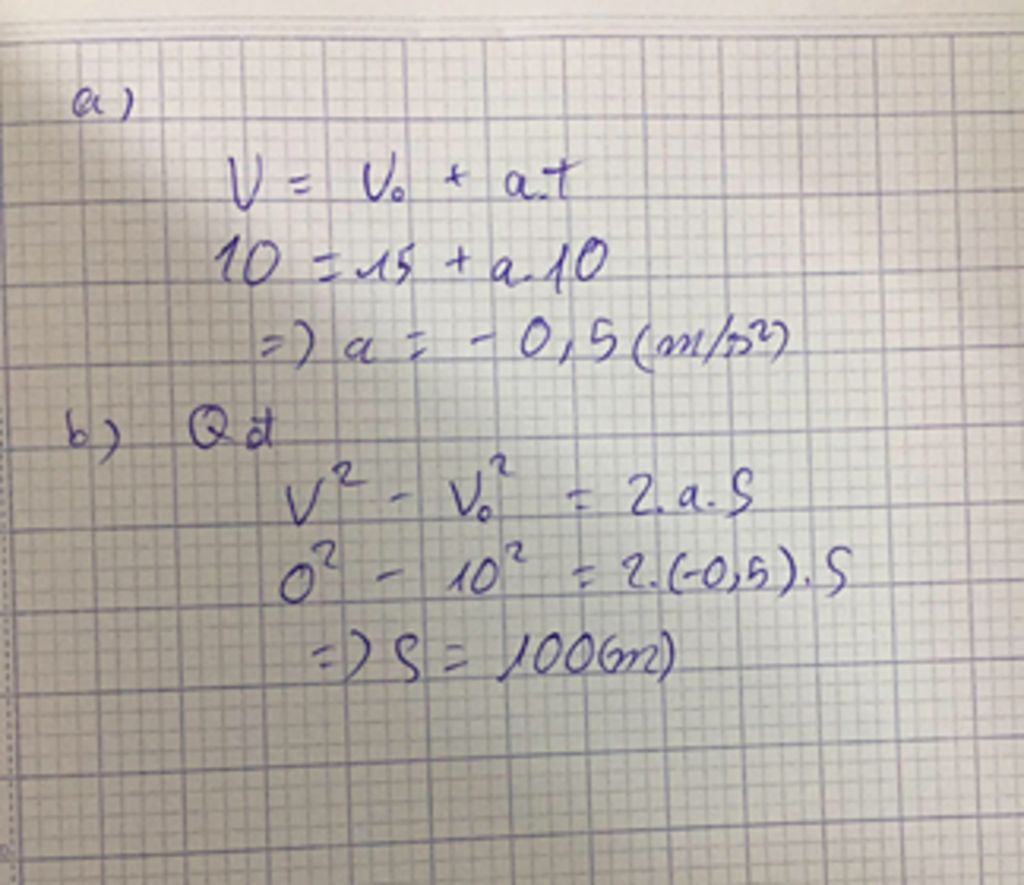 a)
V = V₀ + a.t
10 = 15 + a.10
=) a = - 0,5 (m/s²)
b) Qđ
V² - V₀² = 2.a.S
0² - 10² = 2.(-0,5).S
=) S = 100(m)